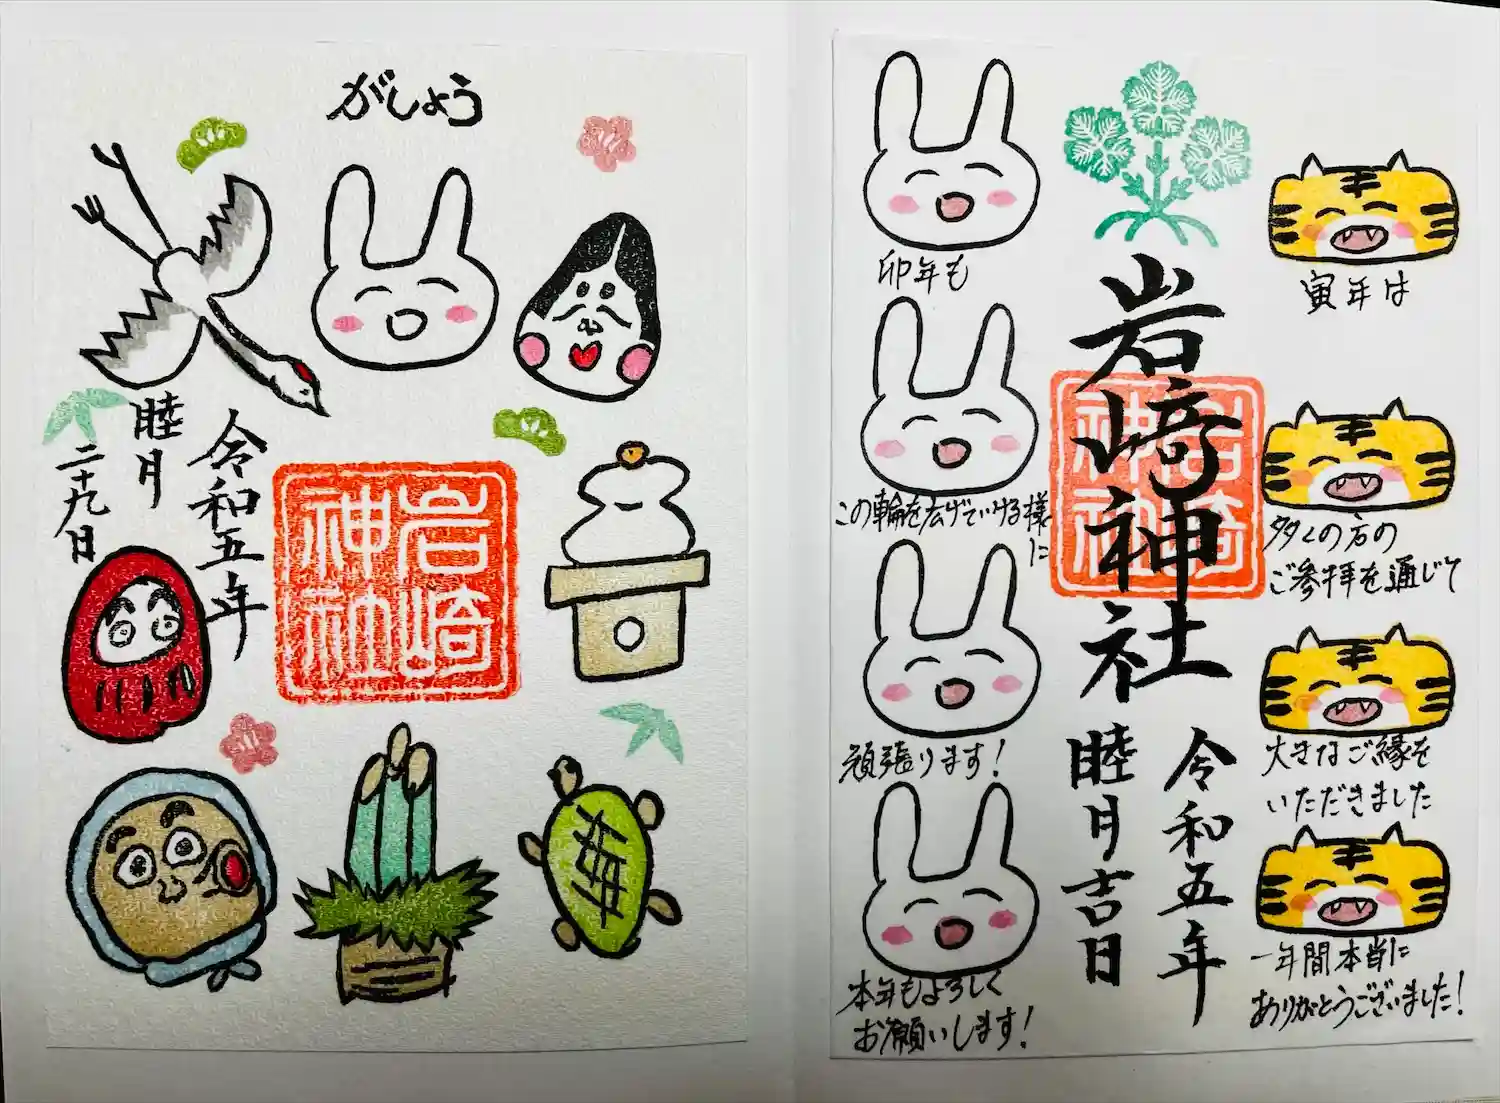 がしょう
令和五年
睦月
二十九日
岩崎
神社
寅年は
多くの方の
ご参拝を通じて
大きなご縁を
いただきました
一年間本当に
ありがとうございました!
岩崎神社
岩崎
神社
令和五年
睦月吉日
卯年も
この輪を広げていける様
に
頑張ります!
本年もよろしく
お願いします!